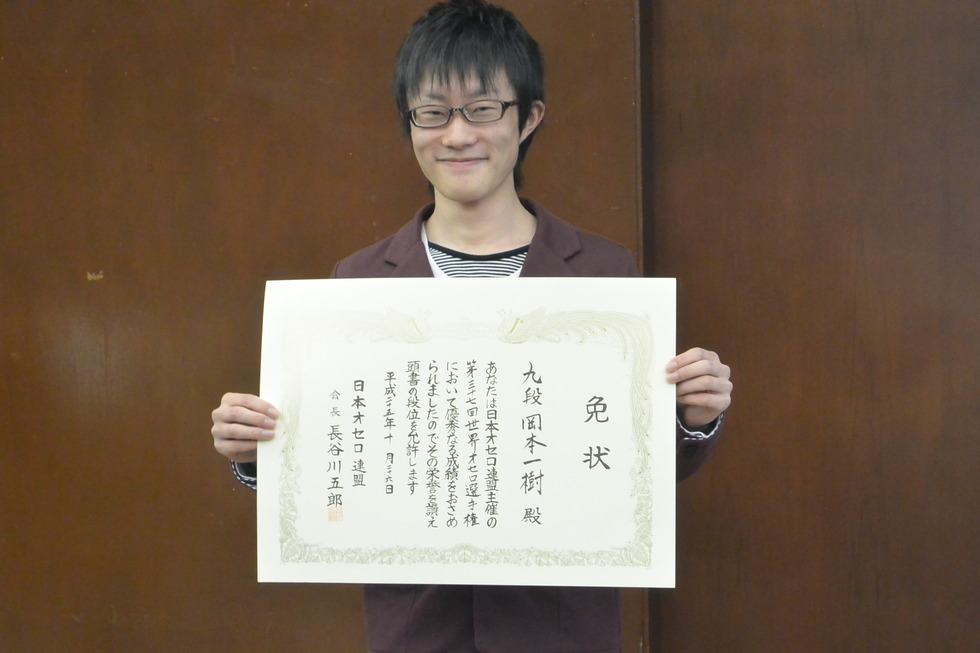 免状
九段 岡本一樹 殿
あなたは日本オセロ連盟主催の
第三十七回世界オセロ選手権
において優秀なる成績をおさめ
られましたのでその栄誉を讃え
頭書の段位を允許します
平成二十五年十一月二十六日
日本オセロ連盟
会長 長谷川五郎